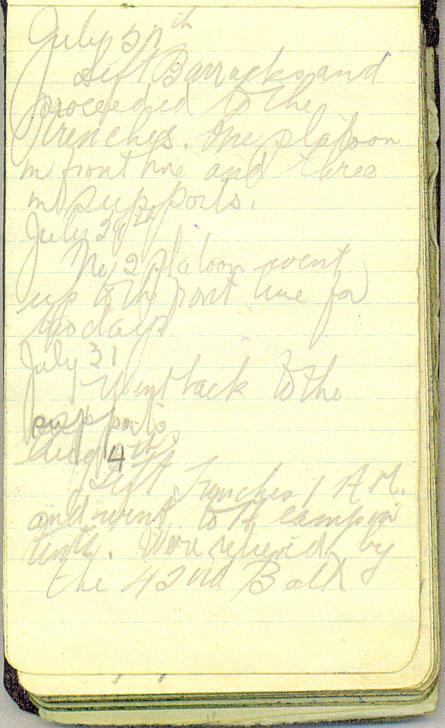 July th
Left Barracks and
proceeded to the
trenches. One platoon
in front line and three
in supports.
July 29th
No 2 platoon went
up to the front line for
two days
July 31
Went back to the
supports
Aug 4
Left Trenches 1 A.M.
and went to camp in
tents. Were relieved by
the 42nd Batt